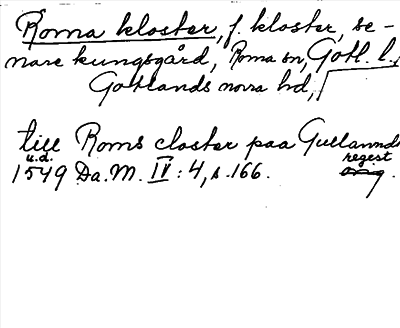 Roma kloster, f. kloster, se-
nare kungsgård, Roma sn, Gotl. l.,
Gotlands norra hd,
till Roms closter paa Gullannds
u.d. regist
1549 Da. M. IV : 4, s. 166. orig.